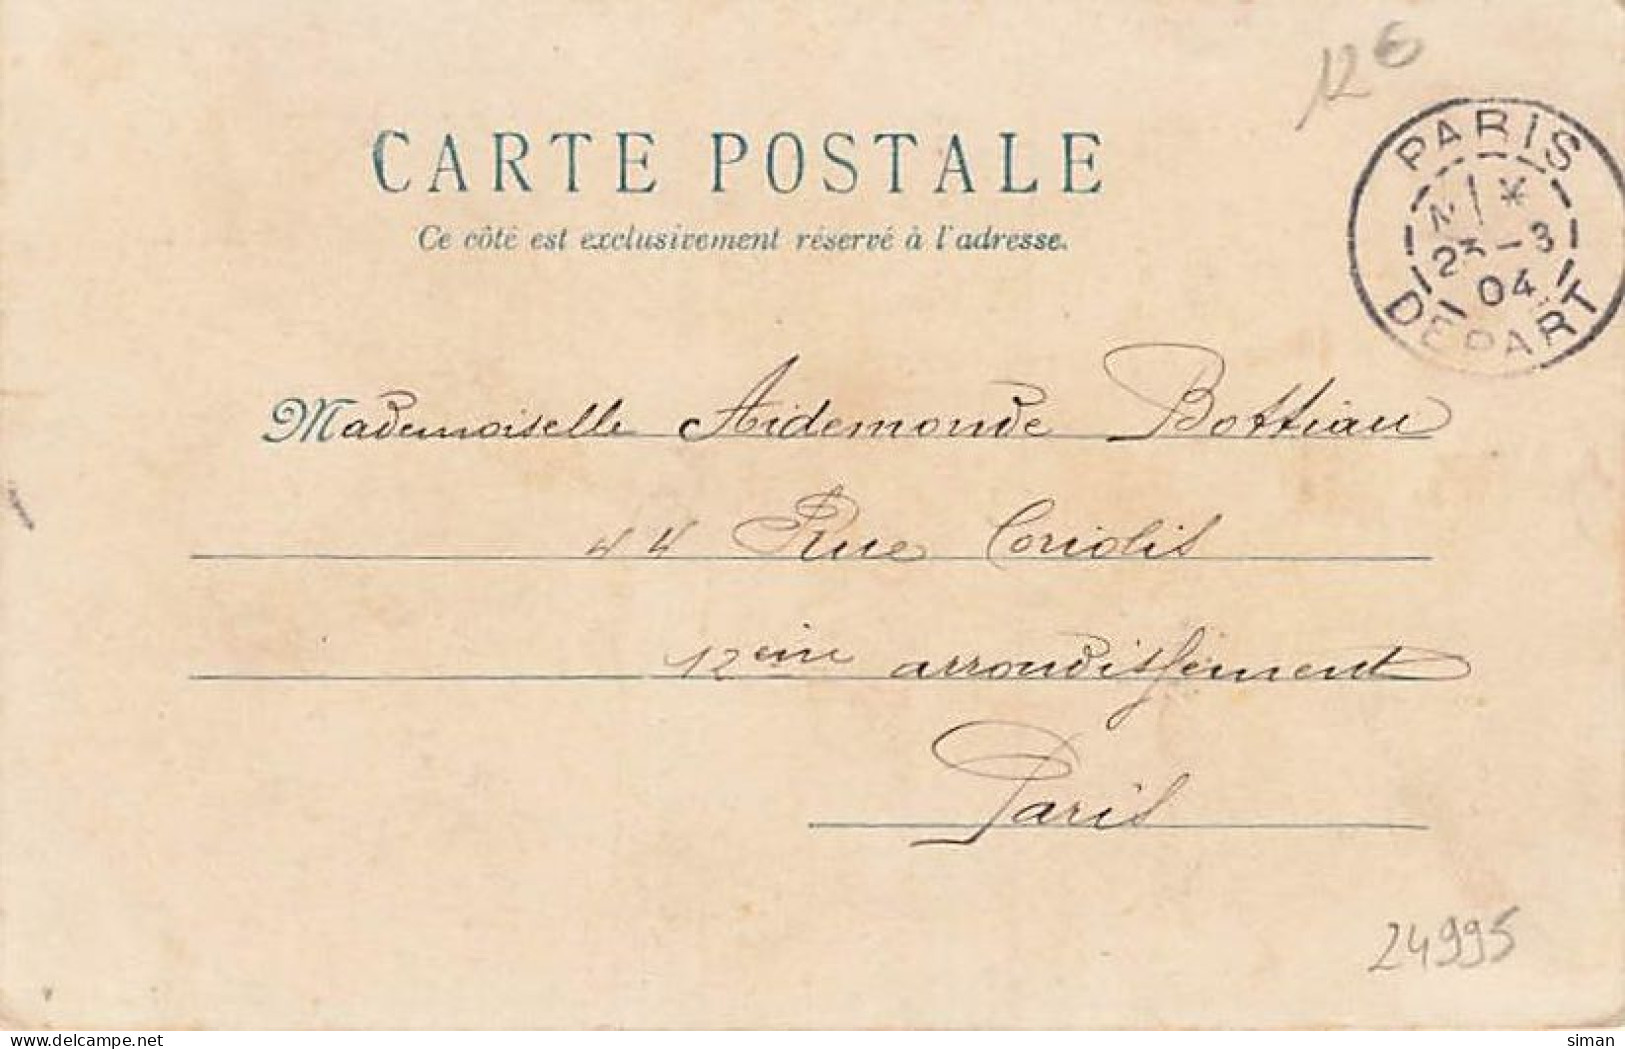 12 €
CARTE POSTALE
Ce côté est exclusivement réservé à l'adresse.
PARIS
23 - 3
04
DEPART
Mademoiselle Aidemonde Bottiau
44 Rue Coriolis
12ème arrondissement
Paris
24995
siman